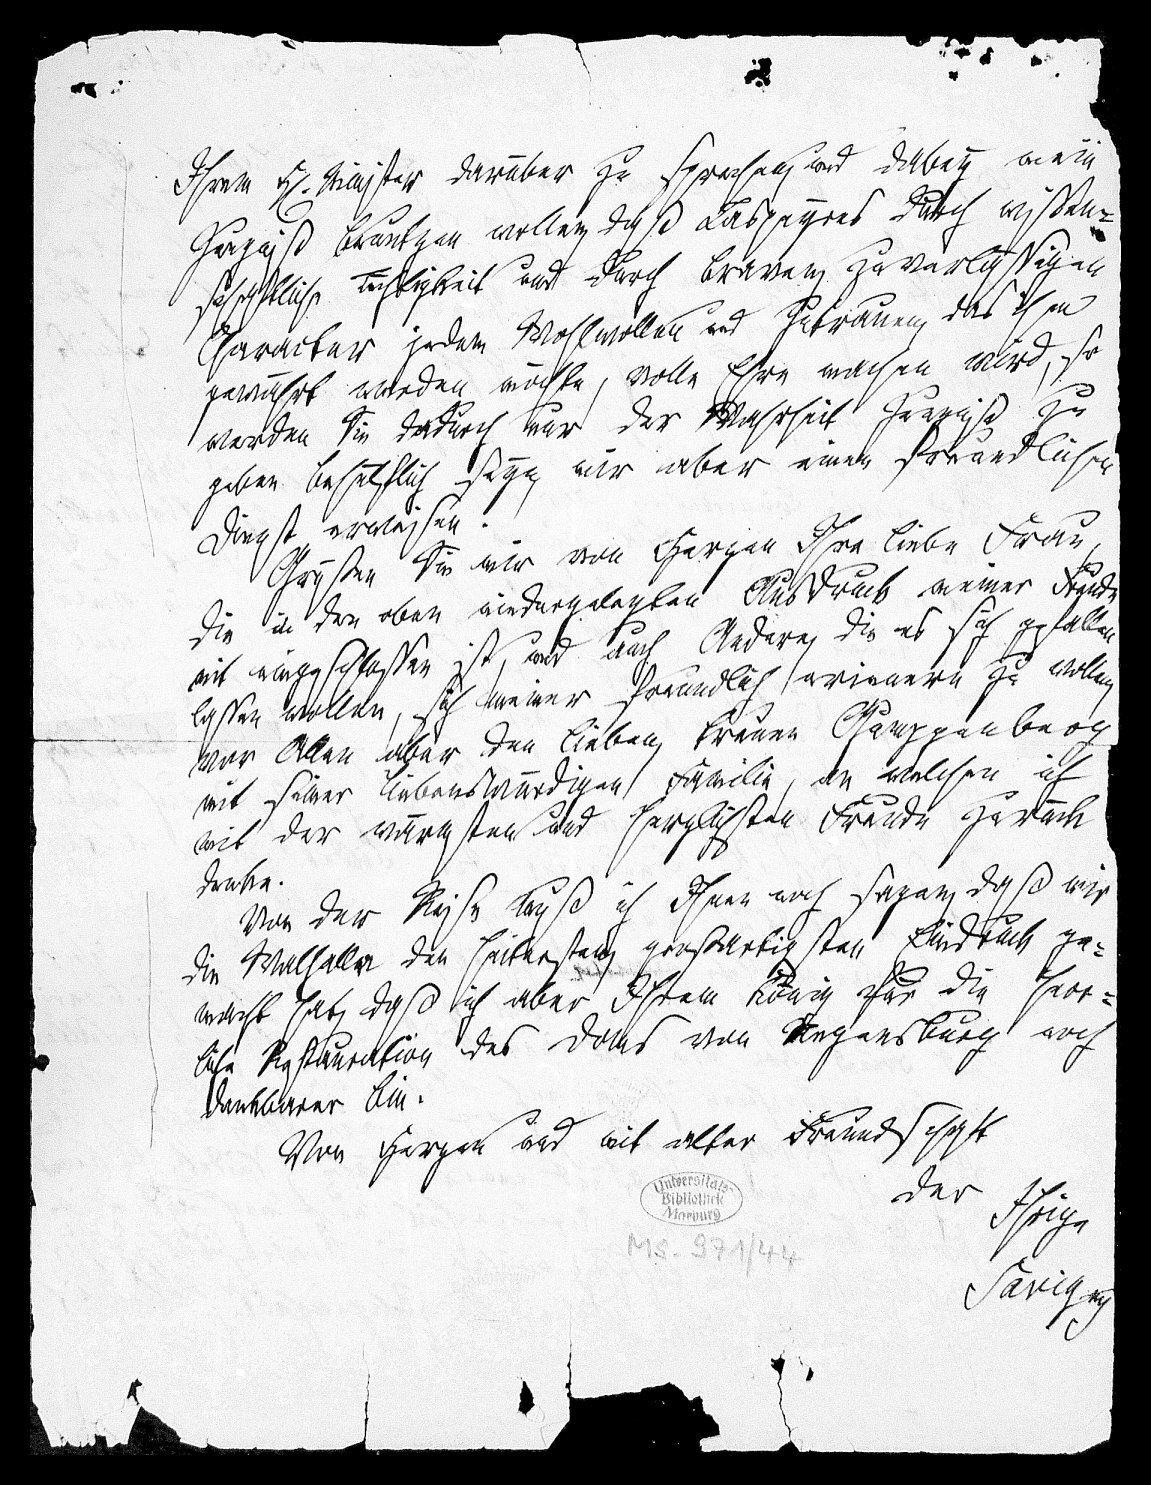 Ihrem H. Minister darüber zu sprechen, und dabey mein
Zeugniß brauchen wollen, daß Laspeyres durch wissen-
schaftliche Tüchtigkeit und durch braven, zuverlässigen
Character jedem Wohlwollen und Zutrauen, das ihm
gewährt werden möchte, volle Ehre machen wird, so
werden Sie dadurch nur der Wahrheit Zeugniß zu
geben behülflich seyn, mir aber einen freundlichen
Dienst erweisen.
Grüßen Sie mir von Herzen Ihre liebe Frau,
die in den oben niedergelegten Ausdruck meiner Freude
mit eingeschlossen ist, und auch Andere, die es sich gefallen
lassen wollen, sich meiner freundlich erinnern zu wollen,
vor Allen aber den lieben, treuen Gumppenberg
mit seiner liebenswürdigen Familie, an welchen ich
mit der wärmsten und herzlichsten Freude zurück
denke.
Von der Reise muß ich Ihnen noch sagen, daß mir
die Walhalla den heitersten, großartigsten Eindruck ge-
macht hat, daß ich aber Ihrem König für die herr-
liche Restauration des Doms von Regensburg noch
dankbarer bin.
Von Herzen und mit alter Freundschaft
der Ihrige
Savigny
Universitäts-
Bibliothek
Marburg
Ms. 971/44